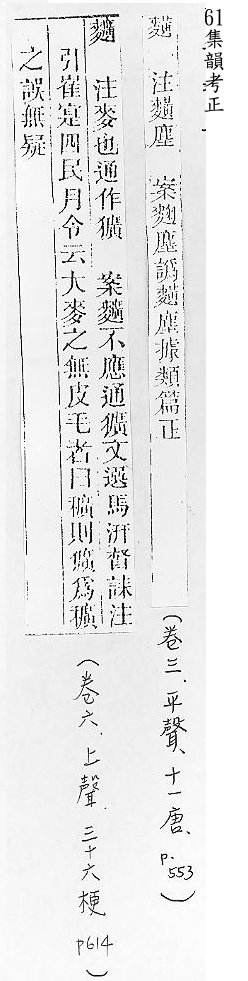 61集韻考正
䵃 注䵃塵 案麴塵譌䵃塵據類篇正
（卷三、平聲、十一唐、p.553）
䵃 注麥也通作獷 案䵃不應通獷文選馬汧督誄注
引崔寔四民月令云大麥之無皮毛者曰穬則獷爲穬
之誤無疑
（卷六、上聲、三十六梗 p614）